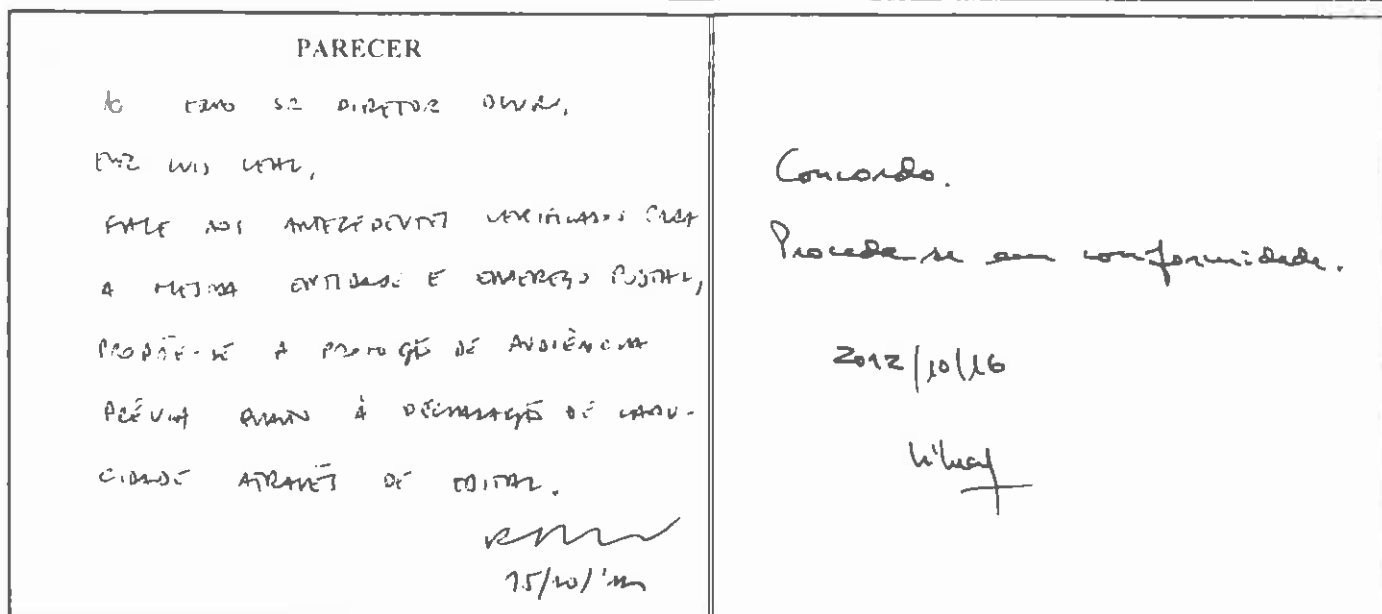 PARECER
AO EXMO SR DIRETOR
LUIS LEAL,
FACE AOS ANTECEDENTES VERIFICADOS PARA
A MESMA ENTIDADE E ENDEREÇO POSTAL,
PROPÕE-SE A PROMOÇÃO DE AUDIÊNCIA
PRÉVIA QUANTO À DECLARAÇÃO DE CADU-
CIDADE ATRAVÉS DE EDITAL.
15/10/
Concordo.
Proceda-se em conformidade.
2012/10/16